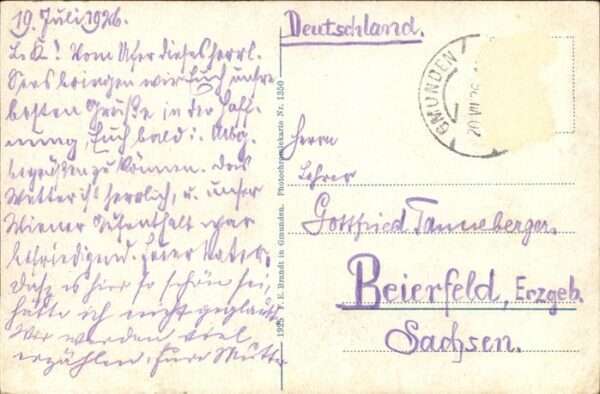 19. Juli 1926.
L. K.! Vom Ufer dieses herrl.
Sees bringen wir Euch unsre
besten Grüße in der Hoff-
nung, Euch bald i.
begrüßen zu können. Das
Wetter ist herrlich, u. unser
Wiener Aufenthalt war
befriedigend. Euer Vater.
Daß es hier so schön sei,
hätte ich nicht geglaubt
Wir werden viel
erzählen. Eure Mutter
1925 F. E. Brandt in Gmunden. Photochromiekarte Nr. 1350
Deutschland.
GMUNDEN
20 VII 26
Herrn
Lehrer
Gottfried Tanneberger
Beierfeld, Erzgeb.
Sachsen.